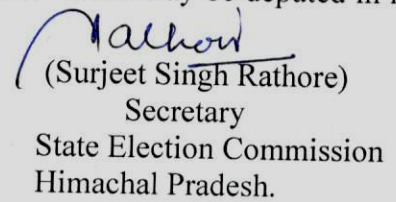 be deputed in
Rathour
(Surjeet Singh Rathore)
Secretary
State Election Commission
Himachal Pradesh.